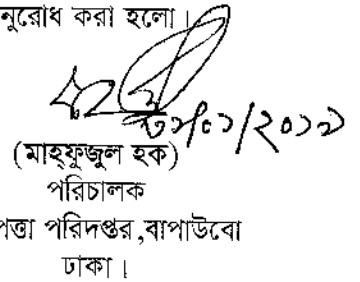 নুরোধ করা হলো।
৩১/০১/২০১৯
(মাহফুজুল হক)
পরিচালক
পত্তা পরিদপ্তর,বাপাউবো
ঢাকা।